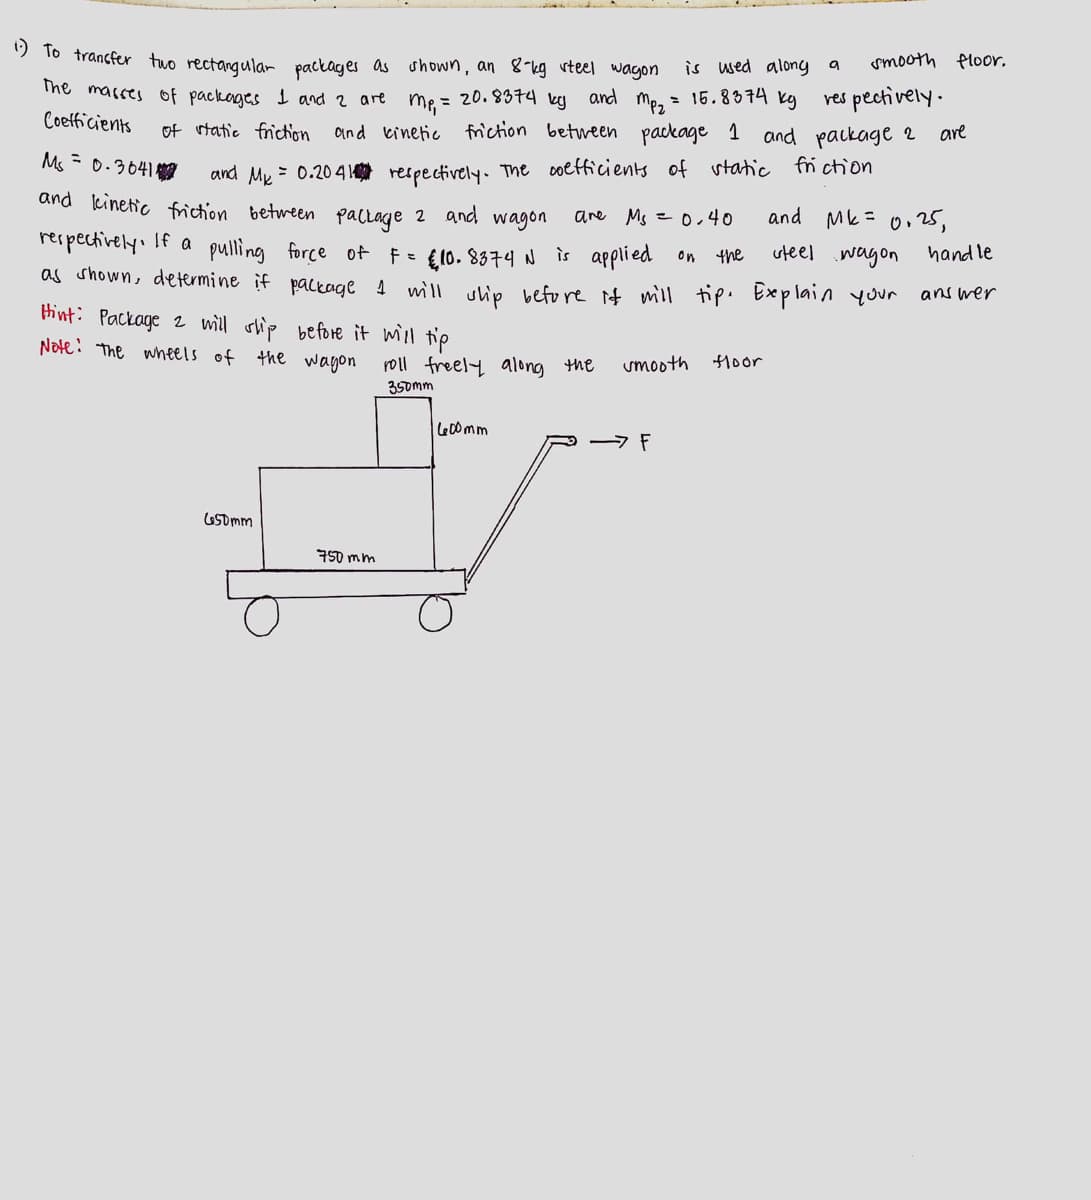 1.) To transfer two rectangular packages as shown, an 8-kg steel wagon is used along a smooth floor.
The masses of packages 1 and 2 are mp₁ = 20.8374 kg and mp₂ = 15.8374 kg respectively.
Coefficients of static friction and kinetic friction between package 1 and package 2 are
Ms = 0.3041 and Mk = 0.2041 respectively. The coefficients of static friction
and kinetic friction between package 2 and wagon are Ms = 0.40 and Mk = 0.25,
respectively. If a pulling force of F = 10.8374 N is applied on the steel wagon handle
as shown, determine if package 1 will slip before it will tip. Explain your answer
Hint: Package 2 will slip before it will tip
Note: The wheels of the wagon roll freely along the smooth floor
350mm
600mm
→ F
650mm
750 mm